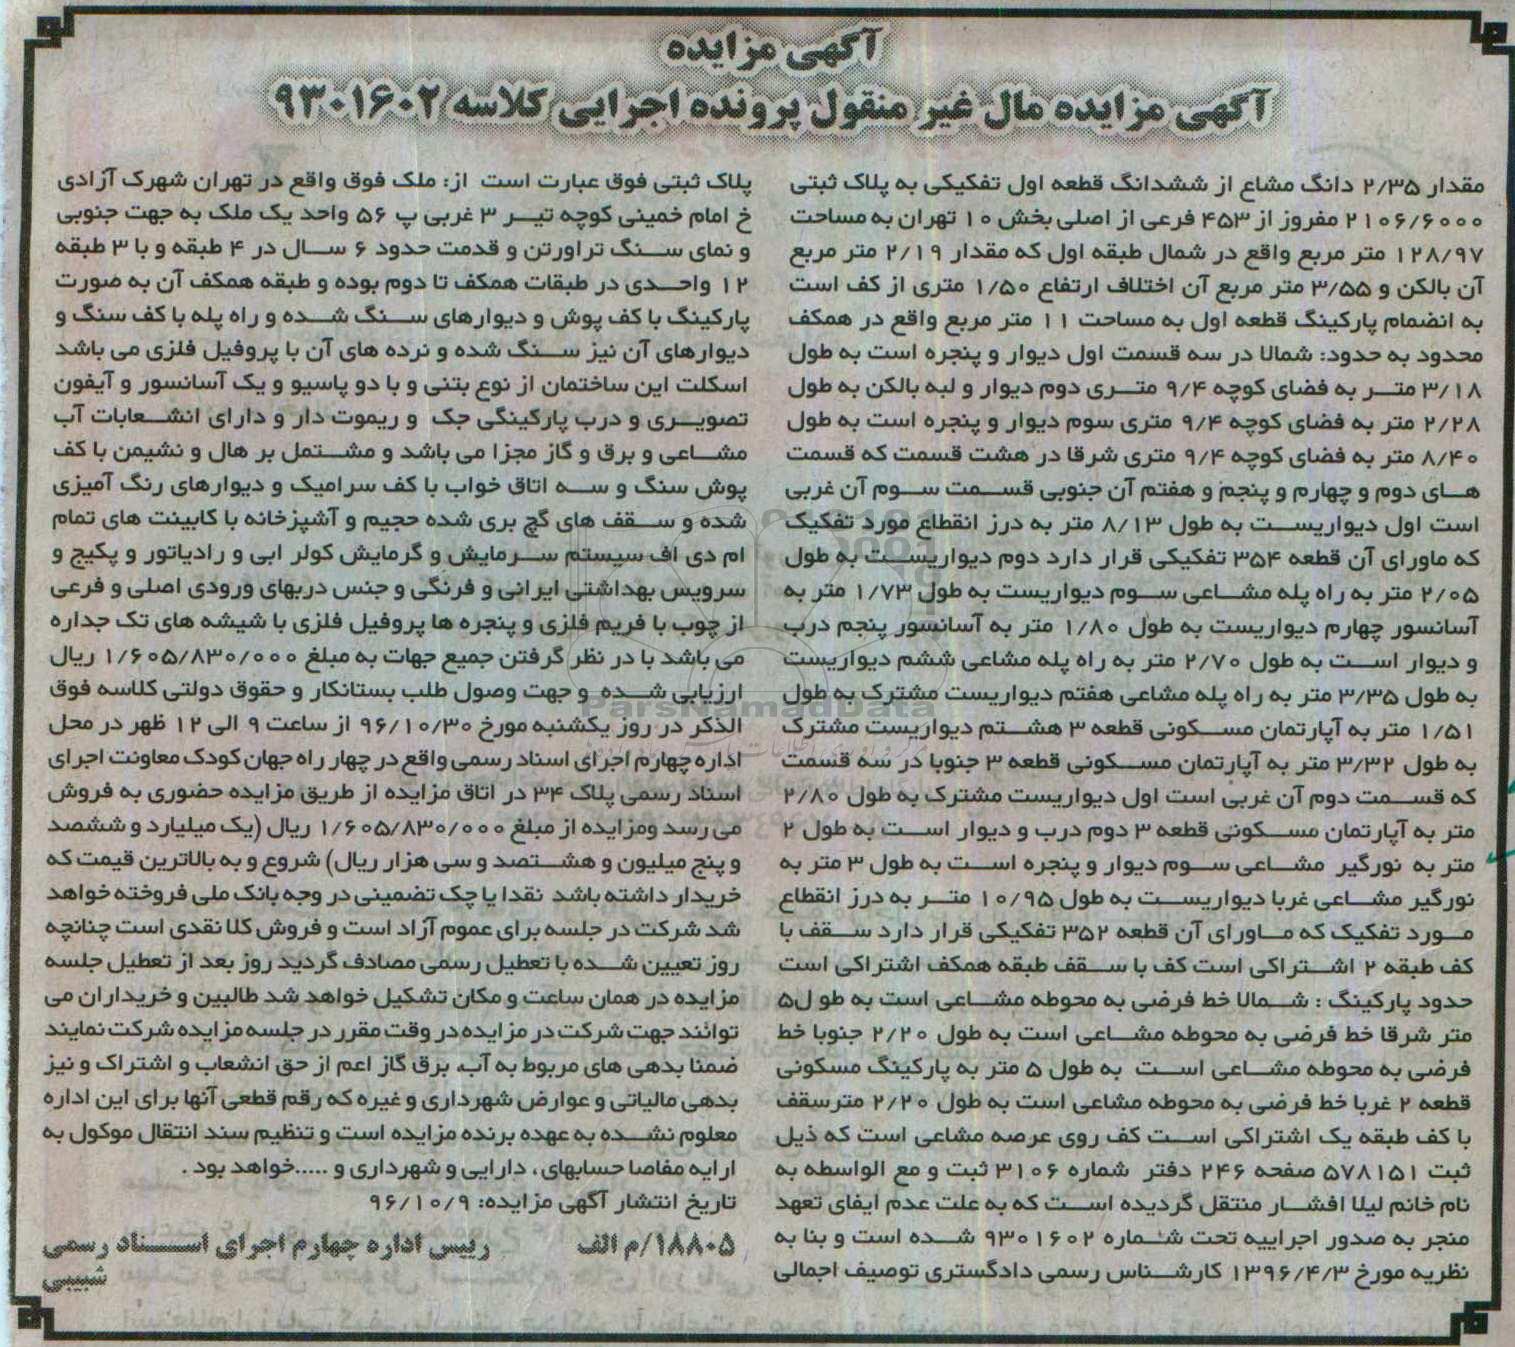 آگهی مزایده
آگهی مزایده مال غیر منقول پرونده اجرایی کلاسه ۹۳۰۱۶۰۲
مقدار ۲/۳۵ دانگ مشاع از ششدانگ قطعه اول تفکیکی به پلاک ثبتی
۲۱۰۶/۶۰۰۰ مفروز از ۴۵۳ فرعی از اصلی بخش ۱۰ تهران به مساحت
۱۲۸/۹۷ متر مربع واقع در شمال طبقه اول که مقدار ۲/۱۹ متر مربع
آن بالکن و ۳/۵۵ متر مربع آن اختلاف ارتفاع ۱/۵۰ متری از کف است
به انضمام پارکینگ قطعه اول به مساحت ۱۱ متر مربع واقع در همکف
محدود به حدود: شمالا در سه قسمت اول دیوار و پنجره است به طول
۳/۱۸ متر به فضای کوچه ۹/۴ متری دوم دیوار و لبه بالکن به طول
۲/۲۸ متر به فضای کوچه ۹/۴ متری سوم دیوار و پنجره است به طول
۸/۴۰ متر به فضای کوچه ۹/۴ متری شرقا در هشت قسمت که قسمت
های دوم و چهارم و پنجم و هفتم آن جنوبی قسمت سوم آن غربی
است اول دیواریست به طول ۸/۱۳ متر به درز انقطاع مورد تفکیک
که ماورای آن قطعه ۳۵۴ تفکیکی قرار دارد دوم دیواریست به طول
۲/۰۵ متر به راه پله مشاعی سوم دیواریست به طول ۱/۷۳ متر به
آسانسور چهارم دیواریست به طول ۱/۸۰ متر به آسانسور پنجم درب
و دیوار است به طول ۲/۷۰ متر به راه پله مشاعی ششم دیواریست
به طول ۳/۳۵ متر به راه پله مشاعی هفتم دیواریست مشترک به طول
۱/۵۱ متر به آپارتمان مسکونی قطعه ۳ هشتم دیواریست مشترک
به طول ۳/۳۲ متر به آپارتمان مسکونی قطعه ۳ جنوبا در سه قسمت
که قسمت دوم آن غربی است اول دیواریست مشترک به طول ۲/۸۰
متر به آپارتمان مسکونی قطعه ۳ دوم درب و دیوار است به طول ۲
متر به نورگیر مشاعی سوم دیوار و پنجره است به طول ۳ متر به
نورگیر مشاعی غربا دیواریست به طول ۱۰/۹۵ متر به درز انقطاع
مورد تفکیک که ماورای آن قطعه ۳۵۲ تفکیکی قرار دارد سقف با
کف طبقه ۲ اشتراکی است کف با سقف طبقه همکف اشتراکی است
حدود پارکینگ : شمالا خط فرضی به محوطه مشاعی است به طول ۵
متر شرقا خط فرضی به محوطه مشاعی است به طول ۲/۲۰ جنوبا خط
فرضی به محوطه مشاعی است به طول ۵ متر به پارکینگ مسکونی
قطعه ۲ غربا خط فرضی به محوطه مشاعی است به طول ۲/۲۰ مترسقف
با کف طبقه یک اشتراکی است کف روی عرصه مشاعی است که ذیل
ثبت ۵۷۸۱۵۱ صفحه ۲۴۶ دفتر شماره ۳۱۰۶ ثبت و مع الواسطه به
نام خانم لیلا افشار منتقل گردیده است که به علت عدم ایفای تعهد
منجر به صدور اجراییه تحت شماره ۹۳۰۱۶۰۲ شده است و بنا به
نظریه مورخ ۱۳۹۶/۴/۳ کارشناس رسمی دادگستری توصیف اجمالی
پلاک ثبتی فوق عبارت است از: ملک فوق واقع در تهران شهرک آزادی
خ امام خمینی کوچه تیر ۳ غربی پ ۵۶ واحد یک ملک به جهت جنوبی
و نمای سنگ تراورتن و قدمت حدود ۶ سال در ۴ طبقه و با ۳ طبقه
۱۲ واحدی در طبقات همکف تا دوم بوده و طبقه همکف آن به صورت
پارکینگ با کف پوش و دیوارهای سنگ شده و راه پله با کف سنگ و
دیوارهای آن نیز سنگ شده و نرده های آن با پروفیل فلزی می باشد
اسکلت این ساختمان از نوع بتنی و با دو پاسیو و یک آسانسور و آیفون
تصویری و درب پارکینگی جک و ریموت دار و دارای انشعابات آب
مشاعی و برق و گاز مجزا می باشد و مشتمل بر هال و نشیمن با کف
پوش سنگ و سه اتاق خواب با کف سرامیک و دیوارهای رنگ آمیزی
شده و سقف های گچ بری شده حجیم و آشپزخانه با کابینت های تمام
ام دی اف سیستم سرمایش و گرمایش کولر ابی و رادیاتور و پکیج و
سرویس بهداشتی ایرانی و فرنگی و جنس دربهای ورودی اصلی و فرعی
از چوب با فریم فلزی و پنجره ها پروفیل فلزی با شیشه های تک جداره
می باشد با در نظر گرفتن جمیع جهات به مبلغ ۱/۶۰۵/۸۳۰/۰۰۰ ریال
ارزیابی شده و جهت وصول طلب بستانکار و حقوق دولتی کلاسه فوق
الذکر در روز یکشنبه مورخ ۹۶/۱۰/۳۰ از ساعت ۹ الی ۱۲ ظهر در محل
اداره چهارم اجرای اسناد رسمی واقع در چهار راه جهان کودک معاونت اجرای
اسناد رسمی پلاک ۳۴ در اتاق مزایده از طریق مزایده حضوری به فروش
می رسد ومزایده از مبلغ ۱/۶۰۵/۸۳۰/۰۰۰ ریال (یک میلیارد و ششصد
و پنج میلیون و هشتصد و سی هزار ریال) شروع و به بالاترین قیمت که
خریدار داشته باشد نقدا یا چک تضمینی در وجه بانک ملی فروخته خواهد
شد شرکت در جلسه برای عموم آزاد است و فروش کلا نقدی است چنانچه
روز تعیین شده با تعطیل رسمی مصادف گردید روز بعد از تعطیل جلسه
مزایده در همان ساعت و مکان تشکیل خواهد شد طالبین و خریداران می
توانند جهت شرکت در مزایده در وقت مقرر در جلسه مزایده شرکت نمایند
ضمنا بدهی های مربوط به آب، برق گاز اعم از حق انشعاب و اشتراک و نیز
بدهی مالیاتی و عوارض شهرداری و غیره که رقم قطعی آنها برای این اداره
معلوم نشده به عهده برنده مزایده است و تنظیم سند انتقال موکول به
ارایه مفاصا حسابهای، دارایی و شهرداری و .....خواهد بود .
تاریخ انتشار آگهی مزایده: ۹۶/۱۰/۹
۱۸۸۰۵/م الف رییس اداره چهارم اجرای اسناد رسمی
شبیبی
ParsNamadData